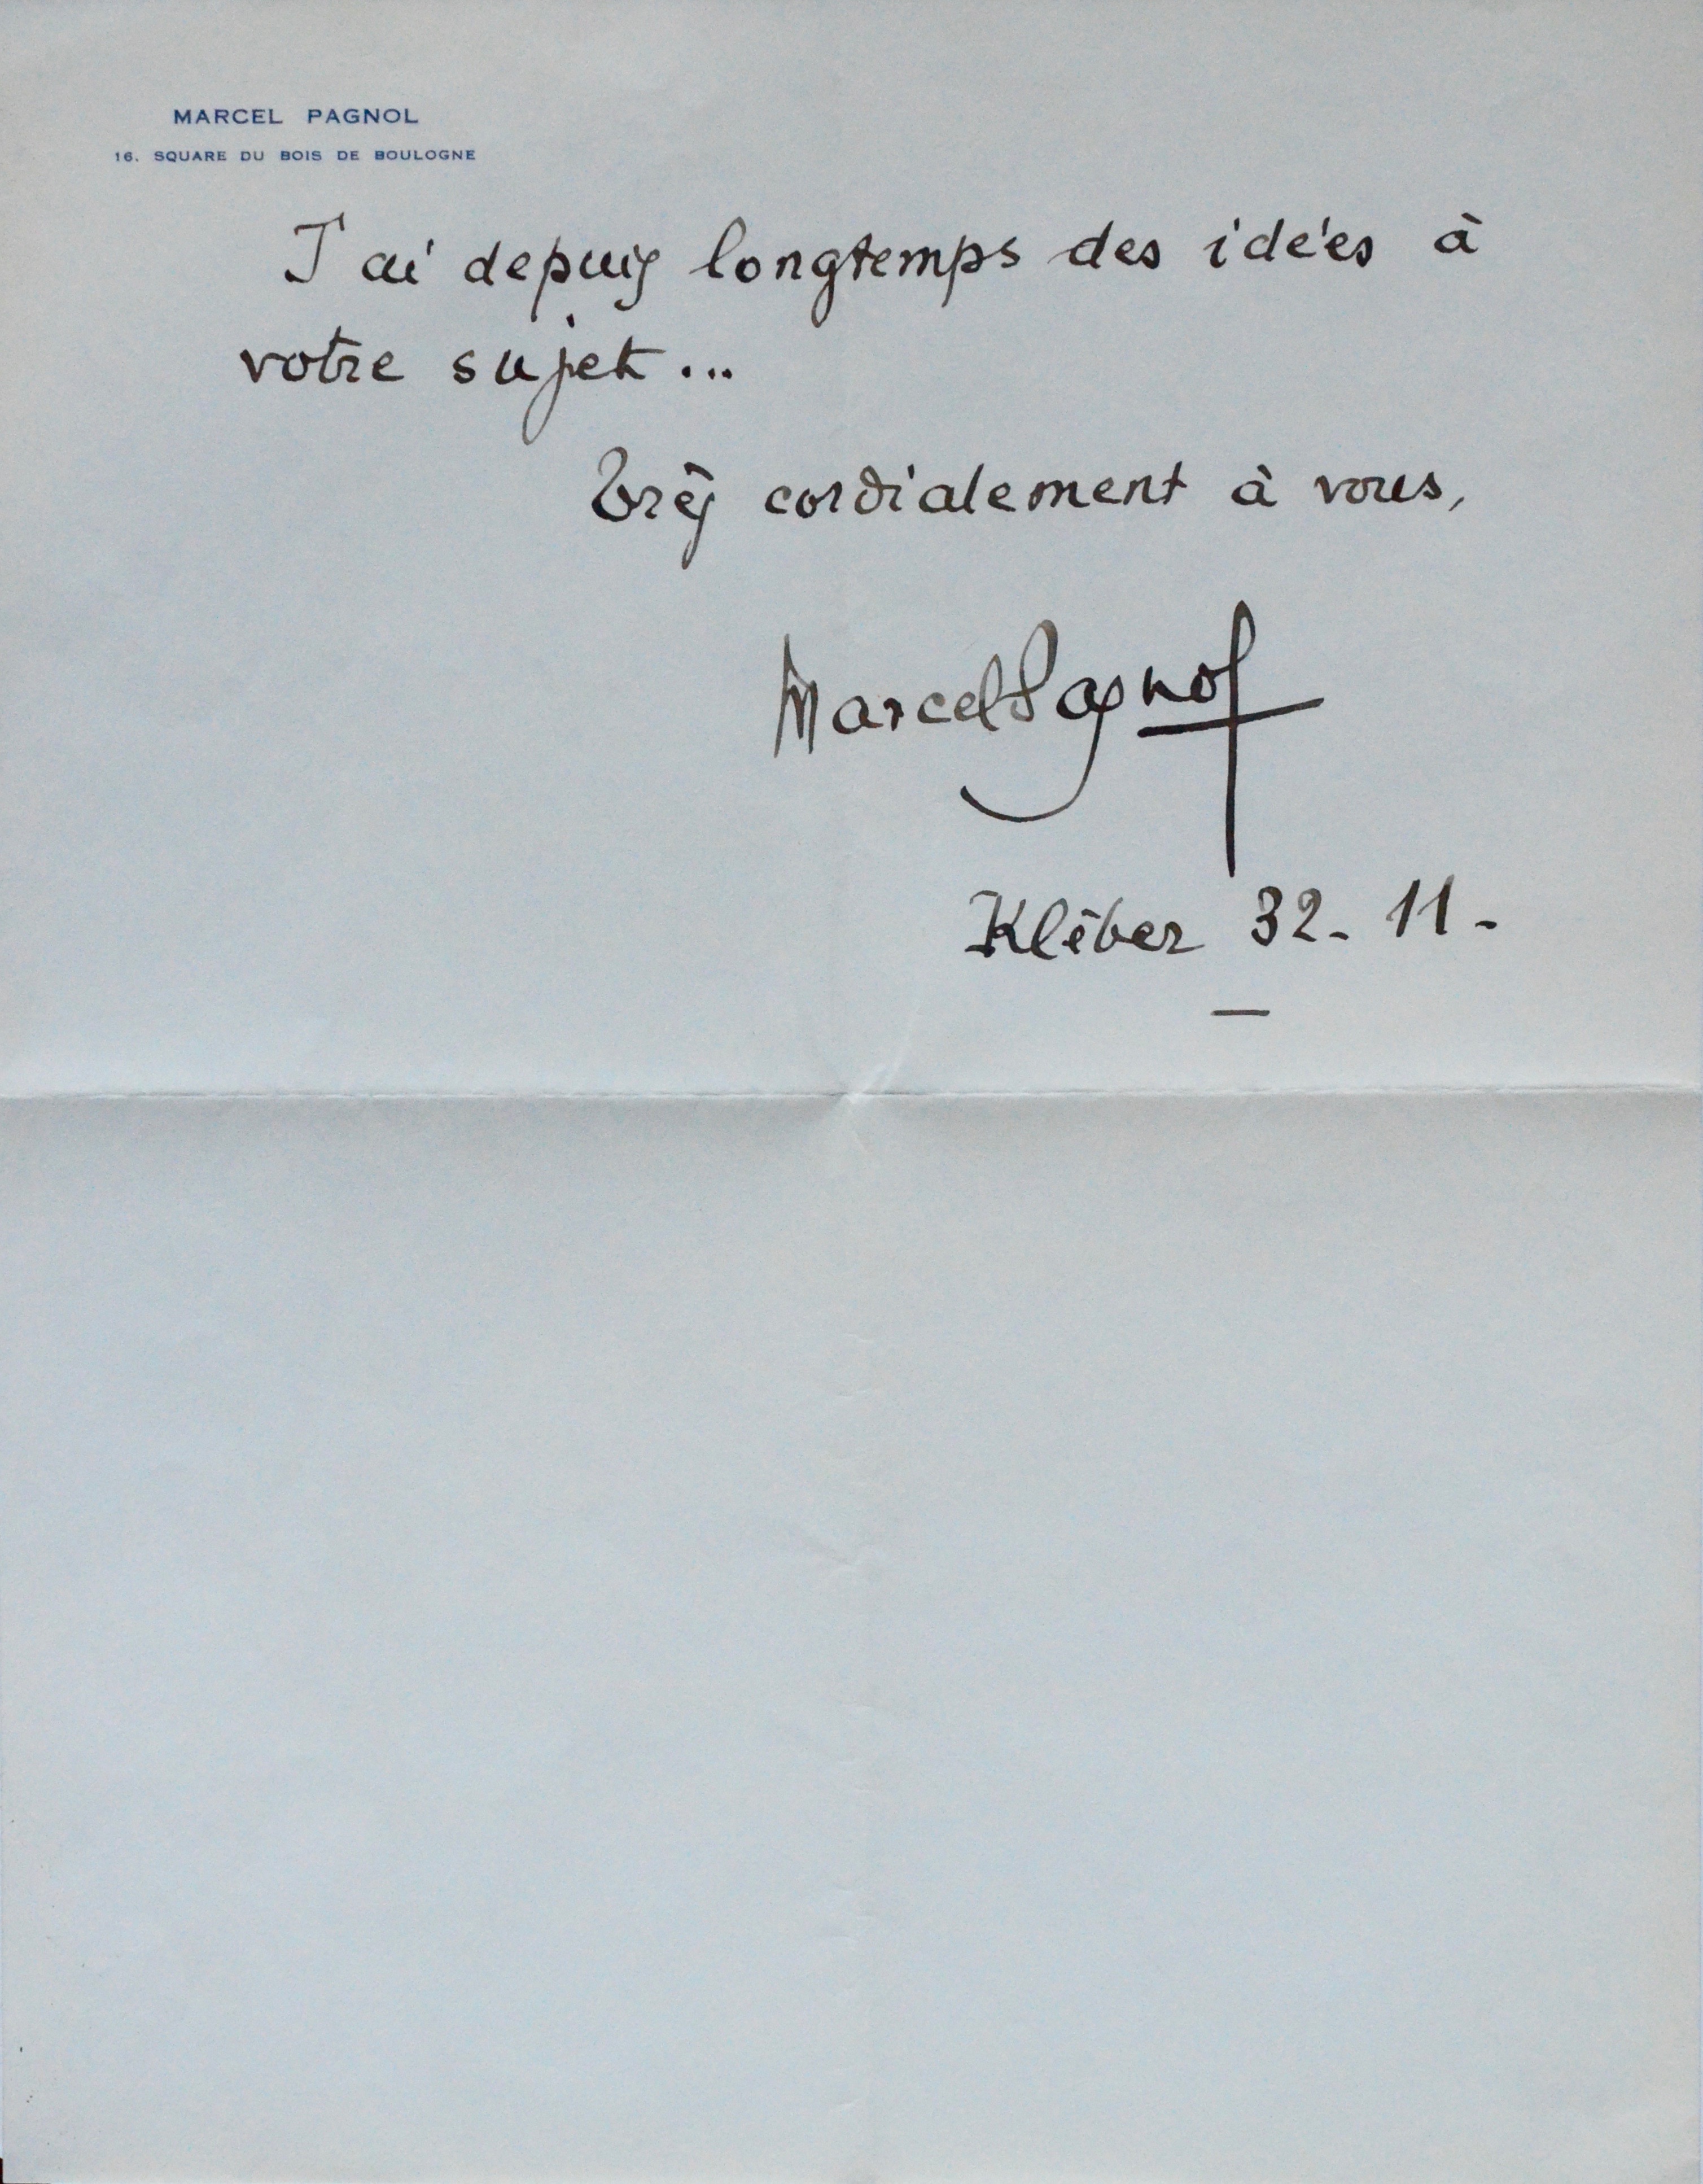 MARCEL PAGNOL
16. SQUARE DU BOIS DE BOULOGNE
J'ai depuis longtemps des idées à
votre sujet...
Très cordialement à vous,
Marcel Pagnol
Kléber 32-11-